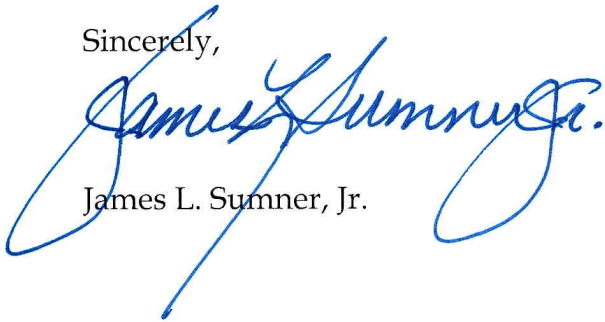 Sincerely,
James L Sumner Jr.
James L. Sumner, Jr.